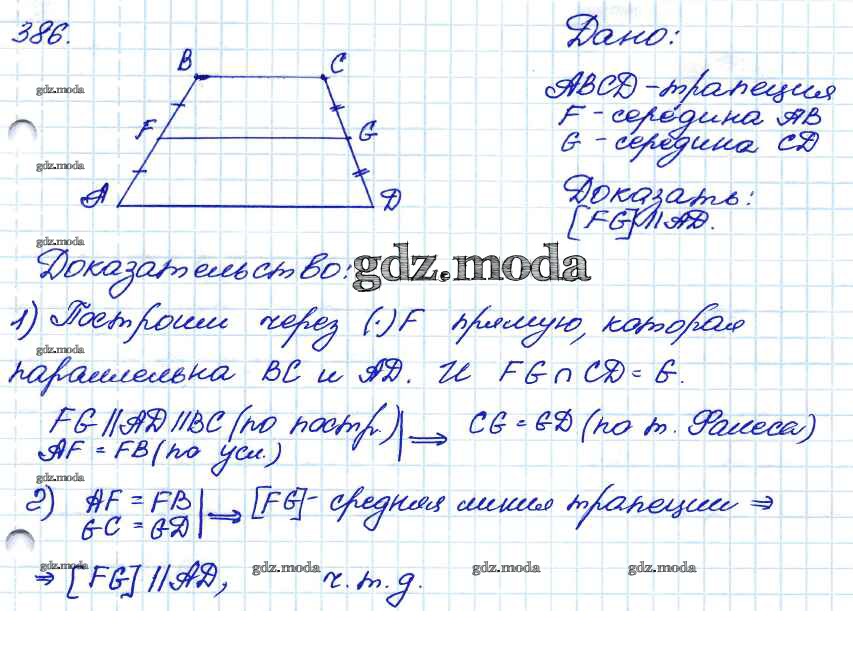 386.
Дано:
B
C
ABCD - трапеция
gdz.moda
F - середина AB
F
G
G - середина CD
gdz.moda
A
D
Доказать:
[FG] || AD.
gdz.moda
Доказательство:
gdz.moda
1) Построим через (·) F прямую, которая
gdz.moda
параллельна BC и AD. И FG ∩ CD = G.
FG || AD || BC (по постр.) | ⇒ CG = GD (по т. Фалеса)
AF = FB (по усл.)
gdz.moda
2) AF = FB | ⇒ [FG] - средняя линия трапеции ⇒
GC = GD
⇒ [FG] || AD, ч.т.д.
gdz.moda
gdz.moda
gdz.moda
gdz.moda